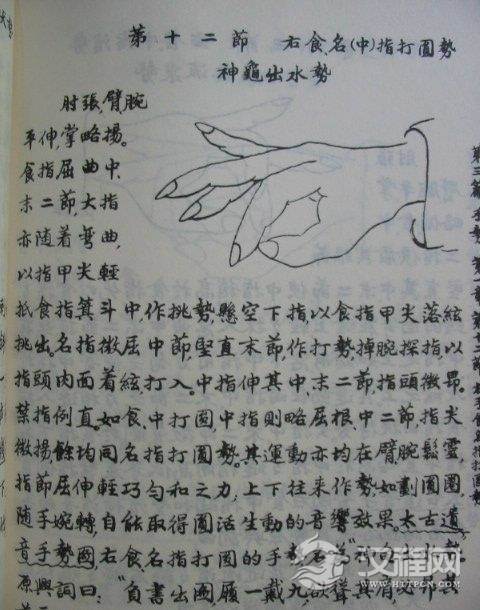 第十二節 右食、名(中)指打圓勢
神龜出水勢
肘張,臂腕
平伸,掌略揚。
食指屈曲中、
末二節,大指
亦随着彎曲,
以指甲尖輕
抵食指箕斗中,作挑勢,懸空下指,以食指甲尖落絃
挑出。名指微屈中節,堅直末節作打勢,掉腕探指,以
指頭肉面着絃,打入。中指伸其中、末二節,指頭微昂。
禁指例直。如食、中打圓,中指則略屈根、中二節,指尖
微揚,餘均同名指打圓勢。其運動亦均在臂、腕鬆靈,
指節屈伸輕巧勻和之力,上下往来作勢,如劃圓圈,
随手婉轉,自能取得圓活生動的音響效果。太古遺
音手勢圖,右食名指打圓的手勢名為"神龜出水勢"
原興詞曰:"負書出圖,履一戴九,欲聲其
第三篇
汉程网